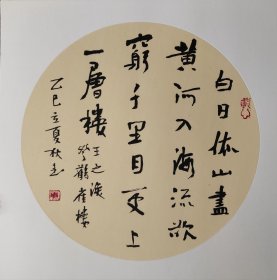 白日依山盡
黄河入海流欲
窮千里目更上
一層樓 王之渙
登鸛雀樓
乙巳立夏秋玉